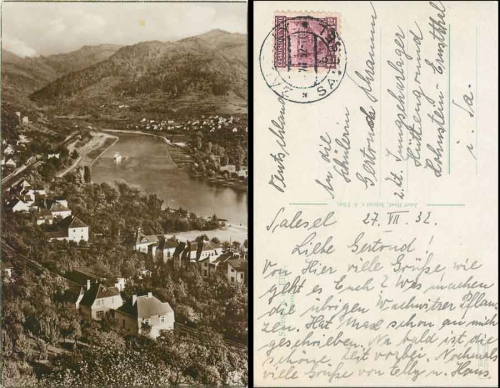 Deutschland
An die
Schülerin
Gertrude Schramm
z. Zt. Jungscharlager
Hüttengrund
Hohenstein-Ernstthal
i. Sa.
Salesel 27. VII. 32.
Liebe Gertrud!
Von Hier viele Grüße, wie
geht es Euch? Was machen
die übrigen Wachwitzer Pflan-
zen. Hat Max schon an mich
geschrieben. Na bald ist die
schöne Zeit vorbei. Nochmals
viele Grüße von Elly u. Hans.